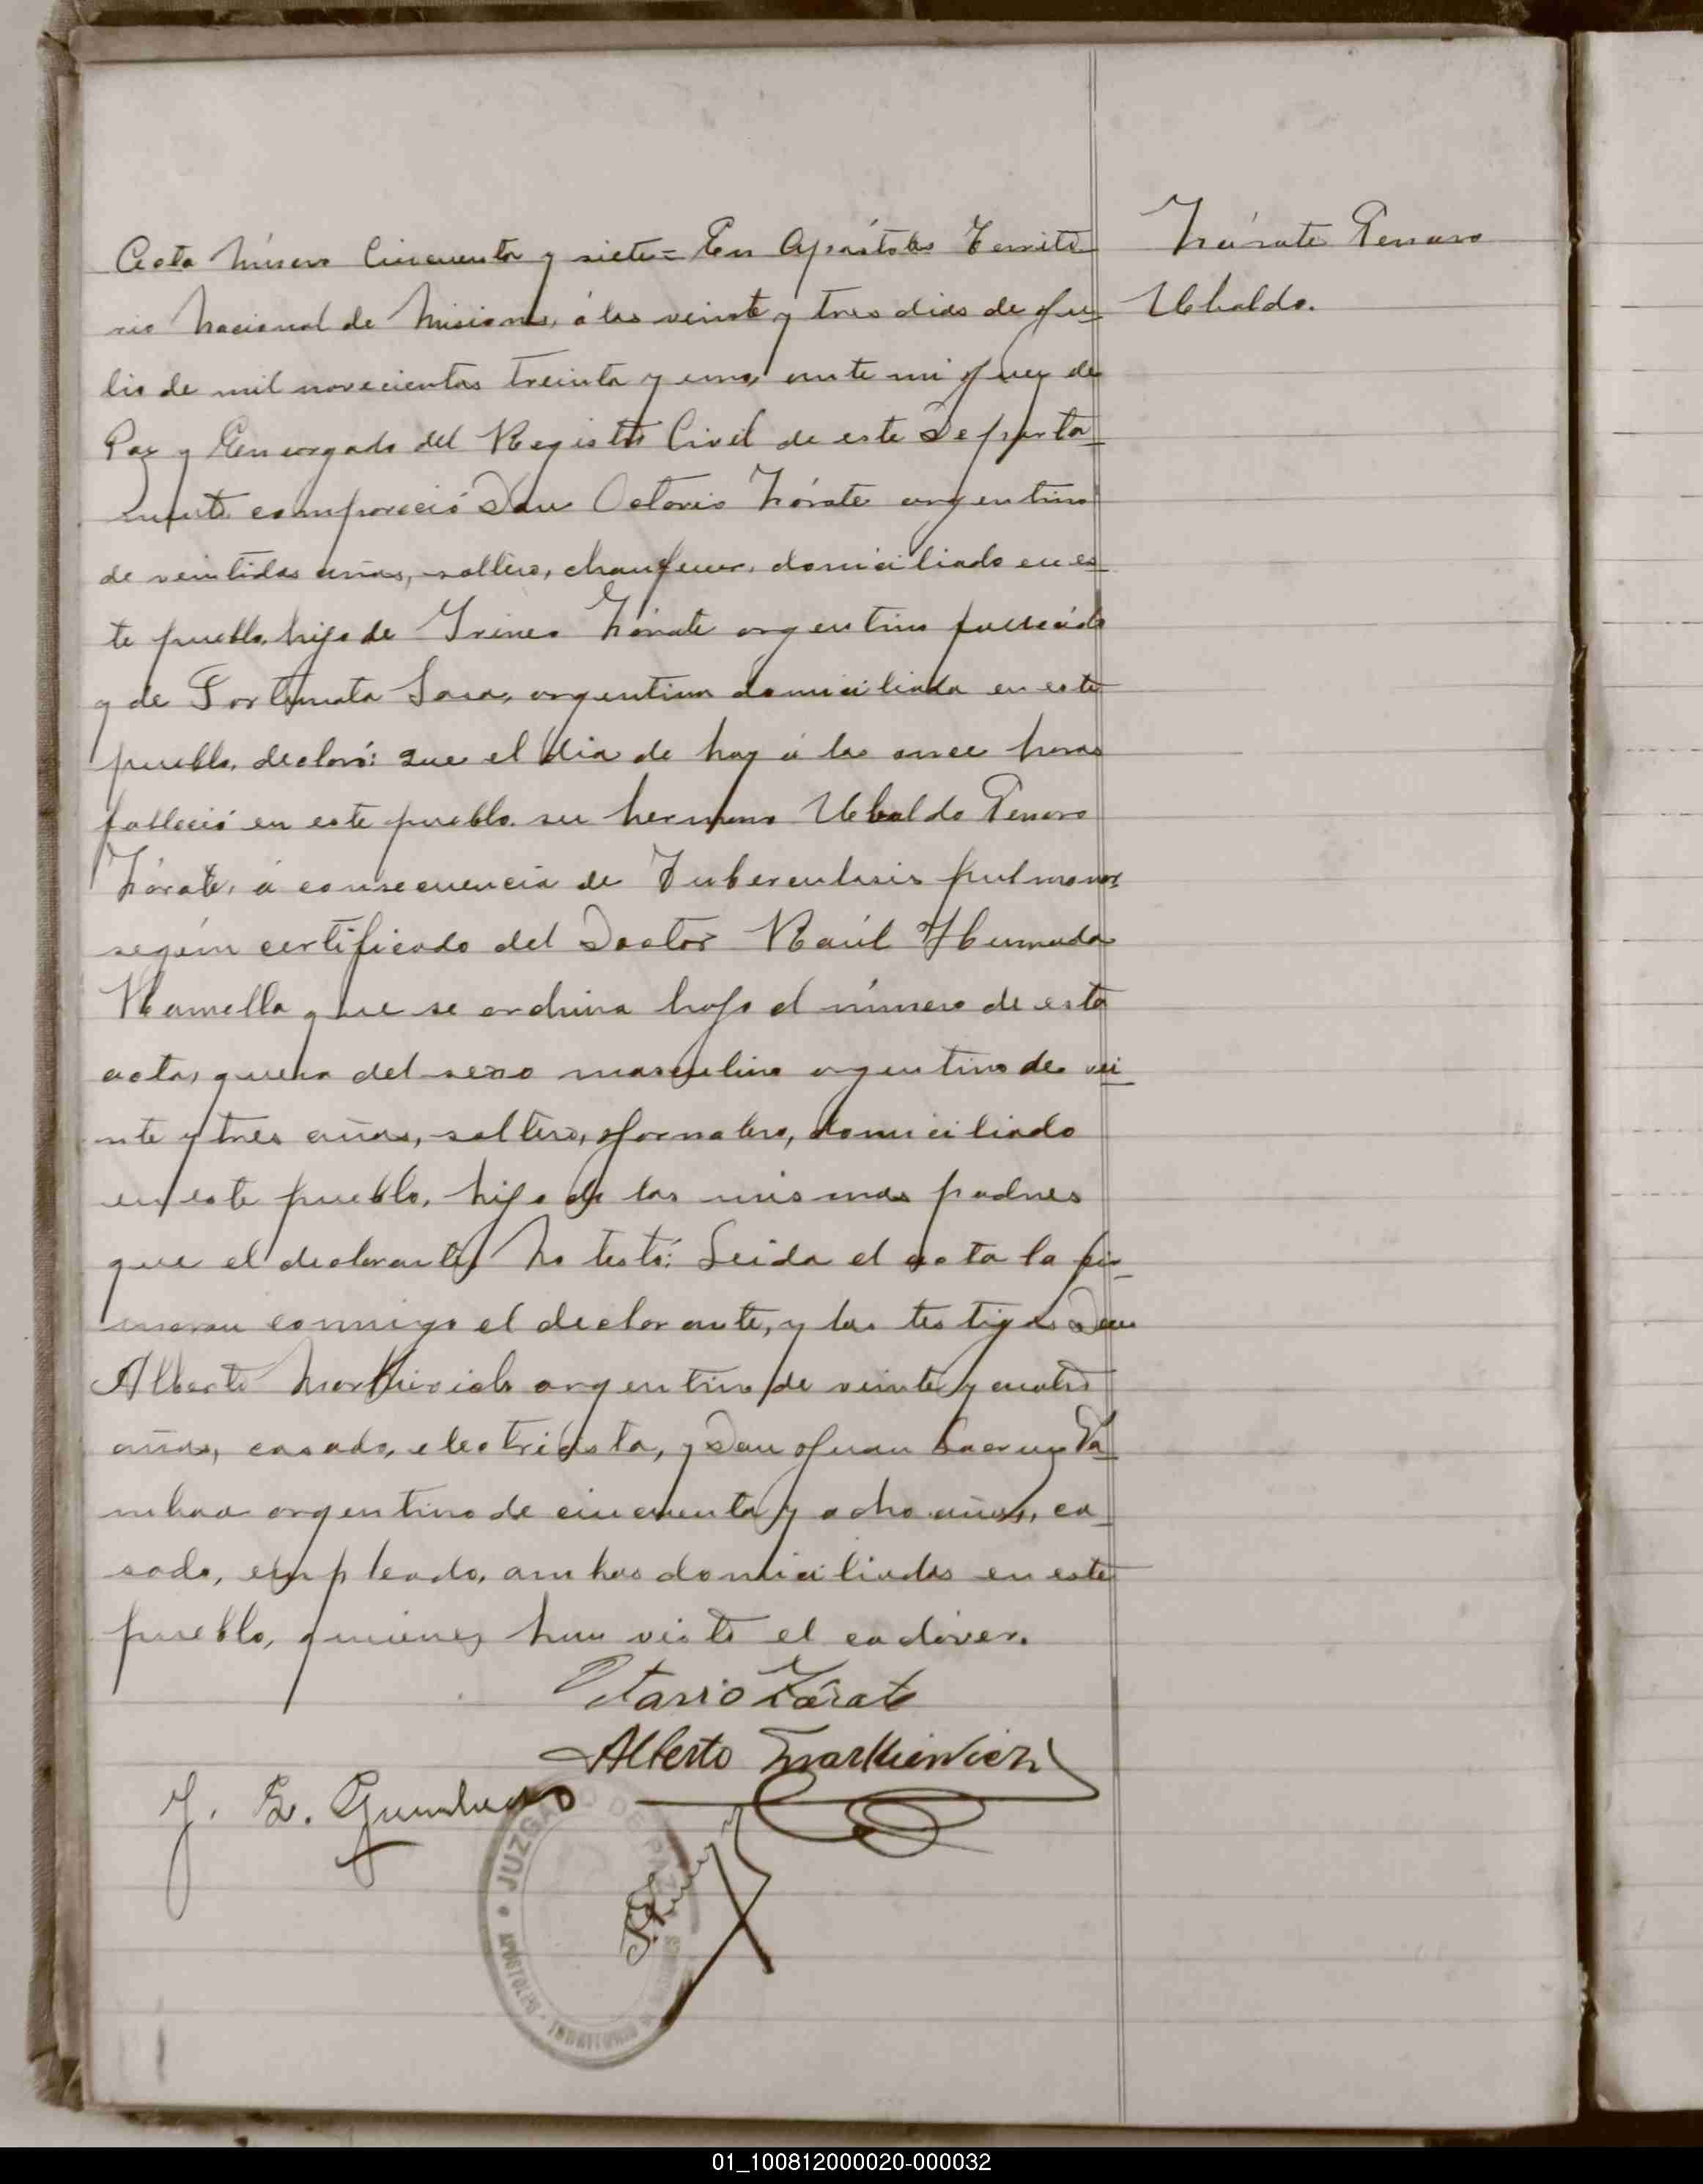 Acta número Cincuenta y siete= En Apóstoles Territo
rio Nacional de Misiones, á los veinte y tres dias de Ju-
lio de mil novecientos treinta y uno, ante mi Juez de
Paz y Encargado del Registro Civil de este Departa-
mento compareció Don Octavio Zárate argentino
de veintidos años, soltero, chaufeur, domiciliado en es-
te pueblo, hijo de Irineo Zárate argentino fallecido
y de Fortunata Sosa, argentina domiciliada en este
pueblo, declaró: Que el dia de hoy á las once horas
falleció en este pueblo su hermano Ubaldo Genaro
Zárate, á consecuencia de Tuberculosis pulmonar
según certificado del Doctor Raúl
Ramella que se archiva bajo el número de esta
acta, que era del sexo masculino argentino de vei-
nte y tres años, soltero, jornalero, domiciliado
en este pueblo, hijo de los mismos padres
que el declarante. No testó: Leida el acta la fir-
maron conmigo el declarante, y los testigos Don
Alberto Markievich argentino de veinte y cuatro
años, casado, electricista, y Don Juan
argentino de cincuenta y ocho años, ca-
sado, empleado, ambos domiciliados en este
pueblo, quienes han visto el cadáver.
Octavio Zárate
Alberto Markiewicz
J. G.
JUZGADO DE PAZ
APOSTOLES - TERRITORIO
Zárate Genaro
Ubaldo.
01_100812000020-000032